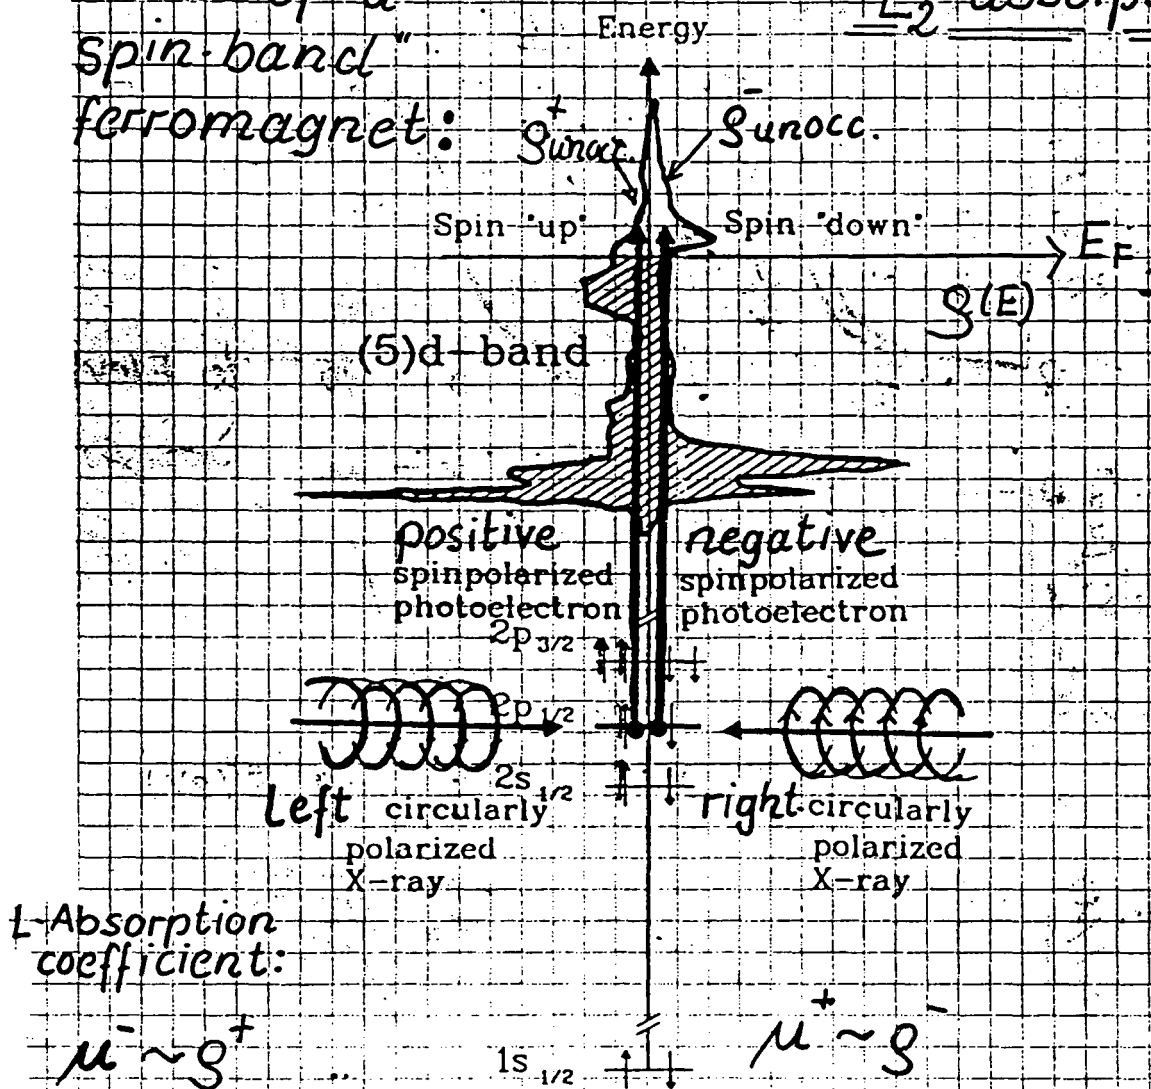 spin-band"
ferromagnet:
L₂ absorp
Energy
ρ⁺unocc.
ρ⁻unocc.
Spin "up"
Spin "down"
E_F
ρ(E)
(5)d-band
positive
spinpolarized
photoelectron
negative
spinpolarized
photoelectron
2p 3/2
2p 1/2
2s 1/2
Left circularly
polarized
X-ray
right circularly
polarized
X-ray
L-Absorption
coefficient:
μ⁻ ~ ρ⁺
μ⁺ ~ ρ⁻
1s 1/2